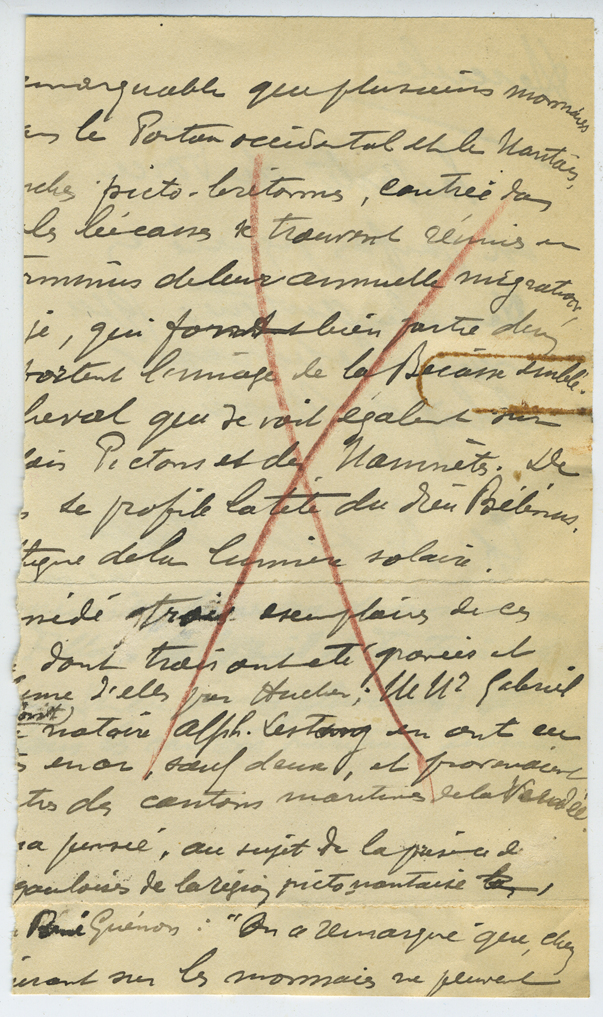 marquable que plusieurs monnaies
le Poitou occidental et le Nantais,
ches picto-bretonnes, contrée dans
les bécasses se trouvent réunies en
de leur annuelle migration,
je, qui font bien partie d'un
portent l'image de la Bécasse semble
cheval que se voit également sur
Pictons et des Namnètes. De
se profile la tête du dieu Bélénus,
tique de la lumière solaire.
sédé trois exemplaires de ces
dont trois ont été gravées et
une d'elles par Hucher; MM Gabriel
notaire Alph. Lestang en ont eu
en or, sauf deux, et provenaient
des cantons maritimes de la Vendée.
a pensée, au sujet de la présence
gauloises de la région picto nantaise
René Guénon : "On a remarqué que, chez
sur les monnaies ne peuvent